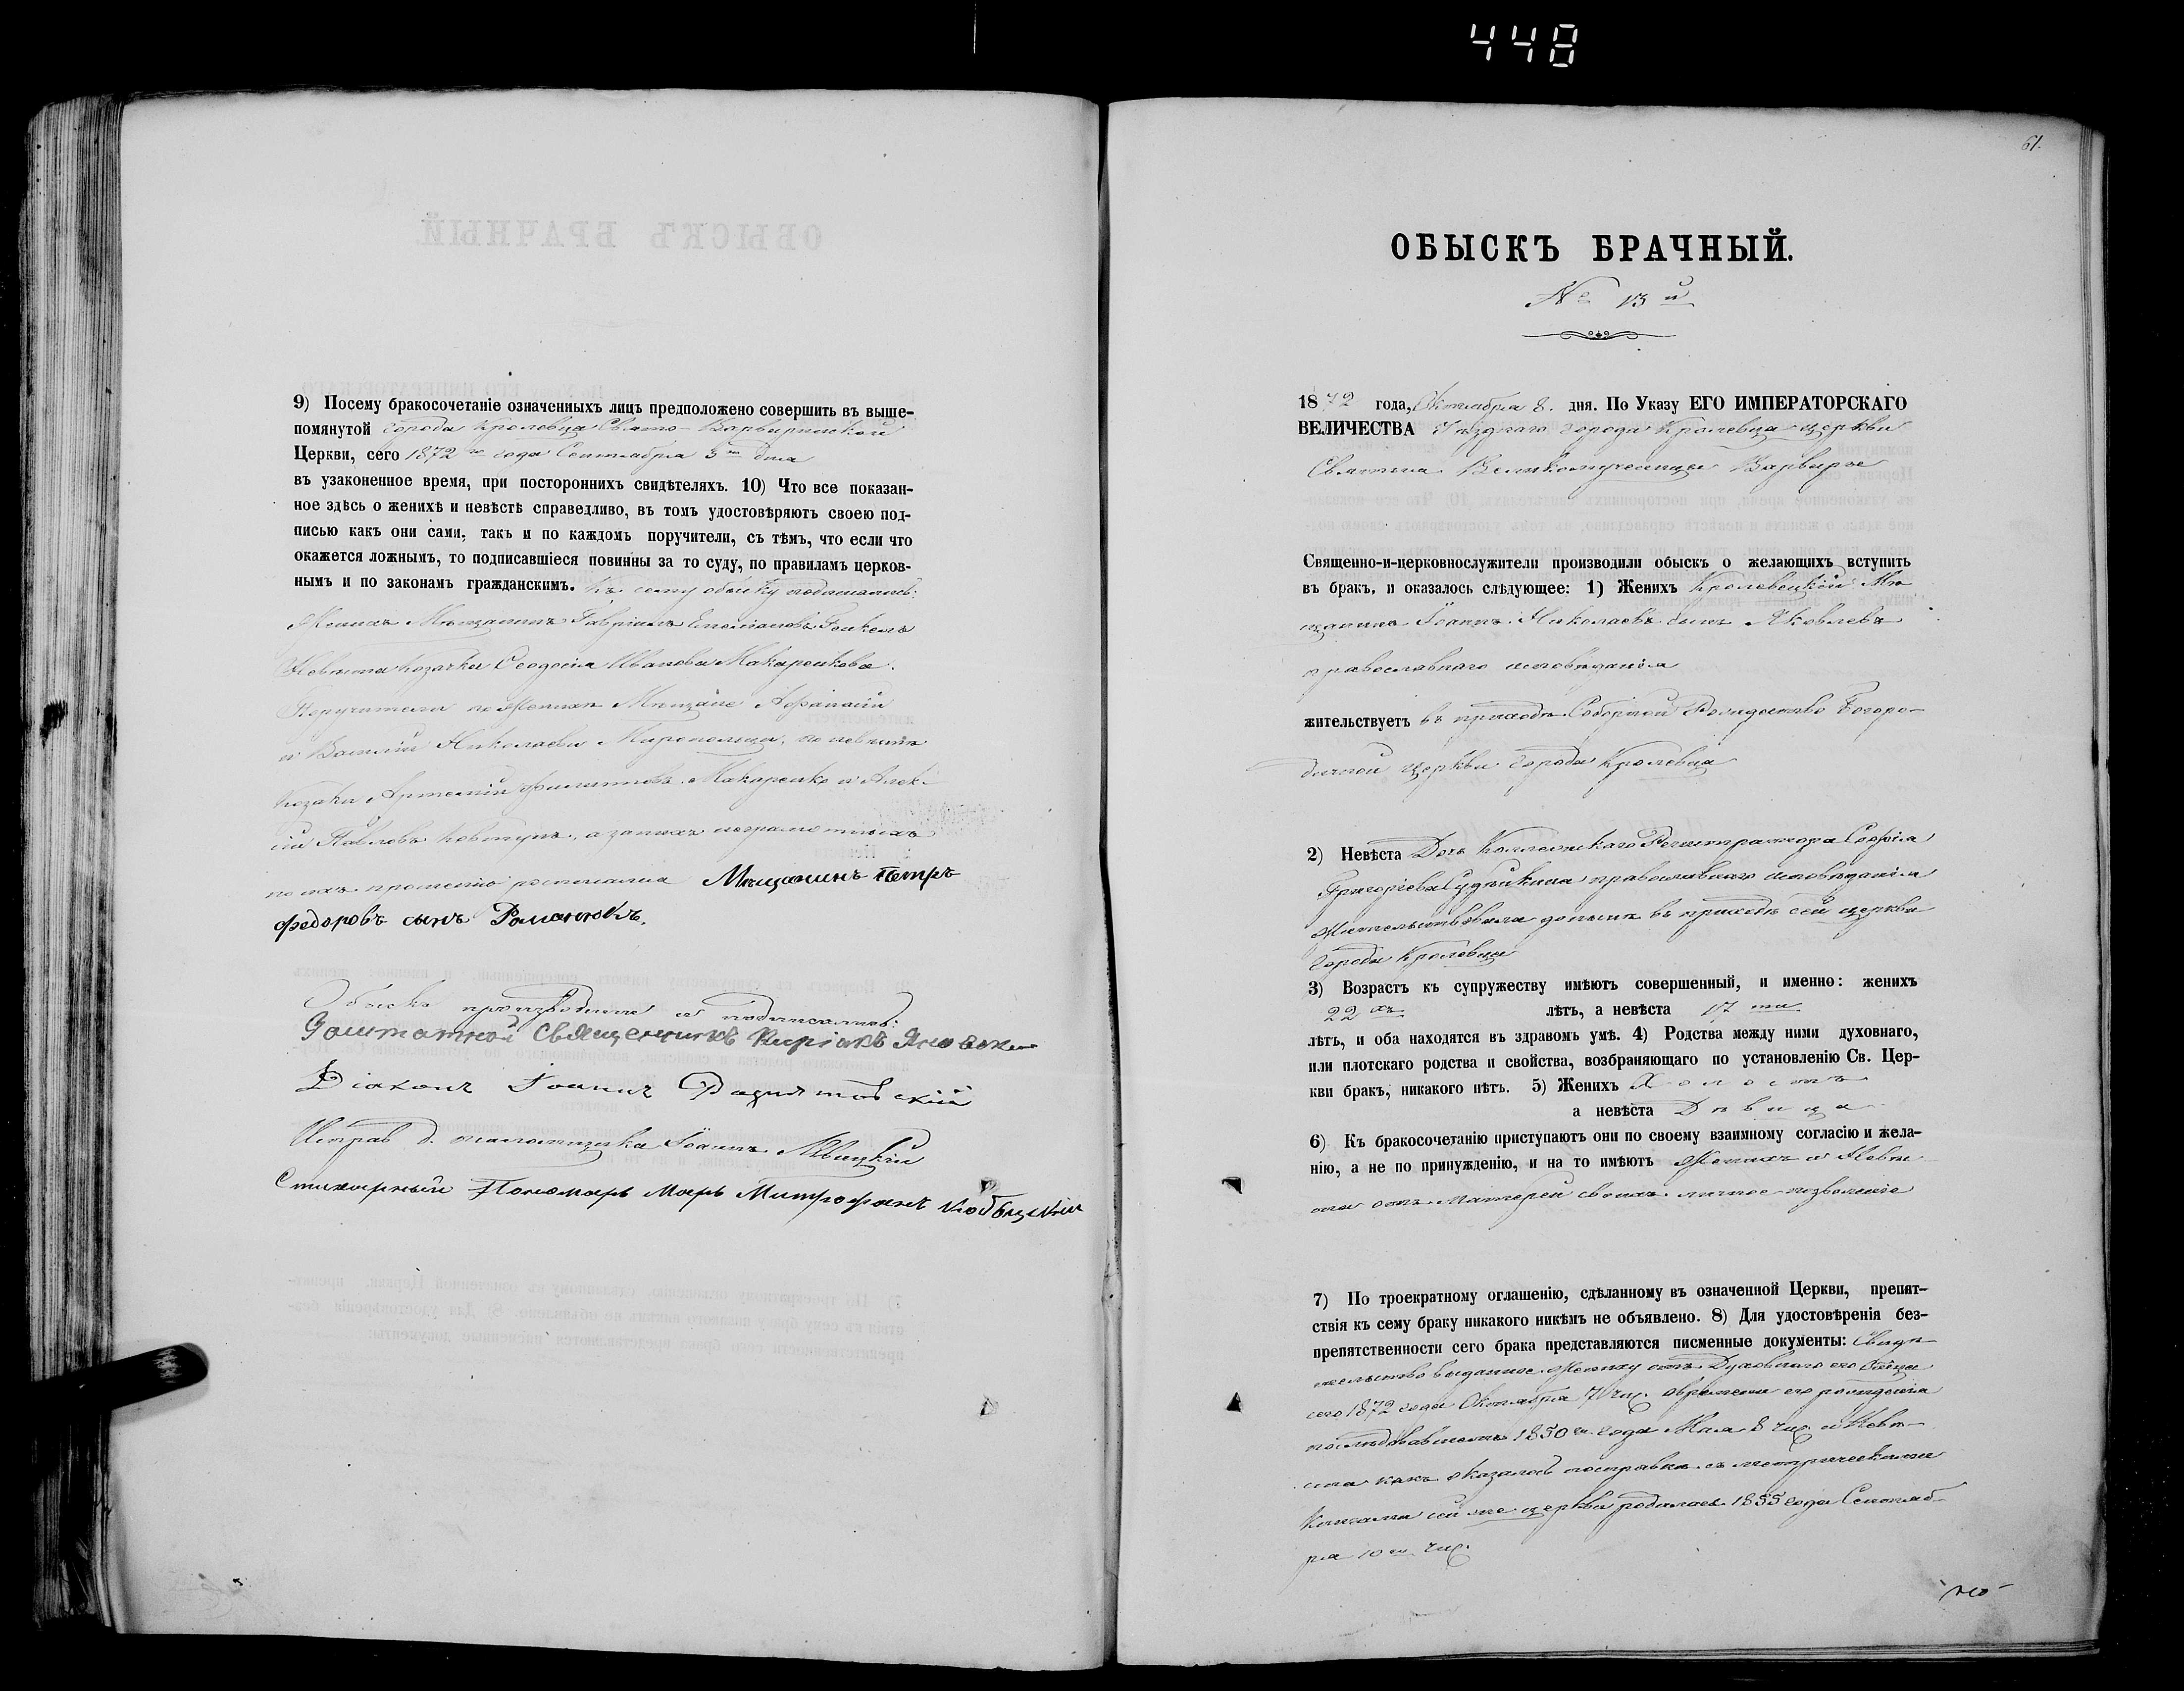 448
9) Посему бракосочетаніе означенныхъ лицъ предположено совершить въ выше-
помянутой города Кролевца Свято-Варваринской
Церкви, сего 1872 го года Сентября 3 го дня
въ узаконенное время, при постороннихъ свидѣтеляхъ. 10) Что все показан-
ное здѣсь о женихѣ и невѣстѣ справедливо, въ томъ удостовѣряютъ своею под-
писью какъ они сами, такъ и по каждомъ поручители, съ тѣмъ, что если что
окажется ложнымъ, то подписавшіеся повинны за то суду, по правиламъ церков-
нымъ и по законамъ гражданскимъ. Къ сему обыску подписались:
Женихъ Мѣщанинъ Гавріилъ Емеліановъ
Невѣста Козачка Ѳеодосія Иванова Макаренкова.
Поручители по Женихѣ Мѣщане Афанасій
и Василій Николаевы, по невѣстѣ
Козаки Артемій Филиповъ Макаренко и Алек-
сій Павловъ Ковтунъ, а за нихъ неграмотныхъ
по ихъ прошенію росписался Мѣщанинъ Петръ
Федоровъ сынъ Романюкъ.
Обыскъ производили и подписались:
Заштатной Священникъ Киріакъ
Діаконъ Іоаннъ
Исправ. д. псаломщика Іоаннъ Левицкій
Стихарный Пономарь Митрофанъ Кобыцкій
61.
ОБЫСКЪ БРАЧНЫЙ.
№ 13 й
1872 года, Октября 8. дня. По Указу ЕГО ИМПЕРАТОРСКАГО
ВЕЛИЧЕСТВА Уѣзднаго города Кролевца церкви
Святыя Великомученицы Варвары
Священно-и-церковнослужители производили обыскъ о желающихъ вступить
въ брак, и оказалось слѣдующее: 1) Женихъ Кролевецкій Мѣ
щанинъ Іоаннъ Николаевъ сынъ Яковлевъ
православнаго исповѣданія
жительствуетъ въ приходѣ Соборной Рождество Богоро-
дичной церкви города Кролевца
2) Невѣста Дочь Коллежскаго Регистратора Софія
Григоріева православнаго исповѣданія
Жительствовала донынѣ въ приходѣ сей церкви
города Кролевца
3) Возрастъ къ супружеству имѣютъ совершенный, и именно: женихъ
22 хъ лѣтъ, а невѣста 17 ти
лѣтъ, и оба находятся въ здравомъ умѣ. 4) Родства между ними духовнаго,
или плотскаго родства и свойства, возбраняющаго по установленію Св. Цер-
кви бракъ, никакого нѣтъ. 5) Женихъ Холостъ
а невѣста Дѣвица
6) Къ бракосочетанію приступаютъ они по своему взаимному согласію и жела-
нію, а не по принужденію, и на то имѣютъ Женихъ и Невѣ
ста отъ Матерей своихъ личное позволеніе
7) По троекратному оглашенію, сдѣланному въ означенной Церкви, препят-
ствія къ сему браку никакого никѣмъ не объявлено. 8) Для удостовѣренія без-
препятственности сего брака представляются писменные документы: Свидѣ
тельство выданное Жениху отъ Духовнаго его Отца
сего 1872 года Октября 7 чис. о времени его рожденія
послѣдовавшемъ 1850 го. года Мая 8 чис. и Невѣ-
ста какъ оказалось по справкѣ съ метрическими
Книгами сей же церкви родилась 1855 года Сентяб-
ря 10 го чис.